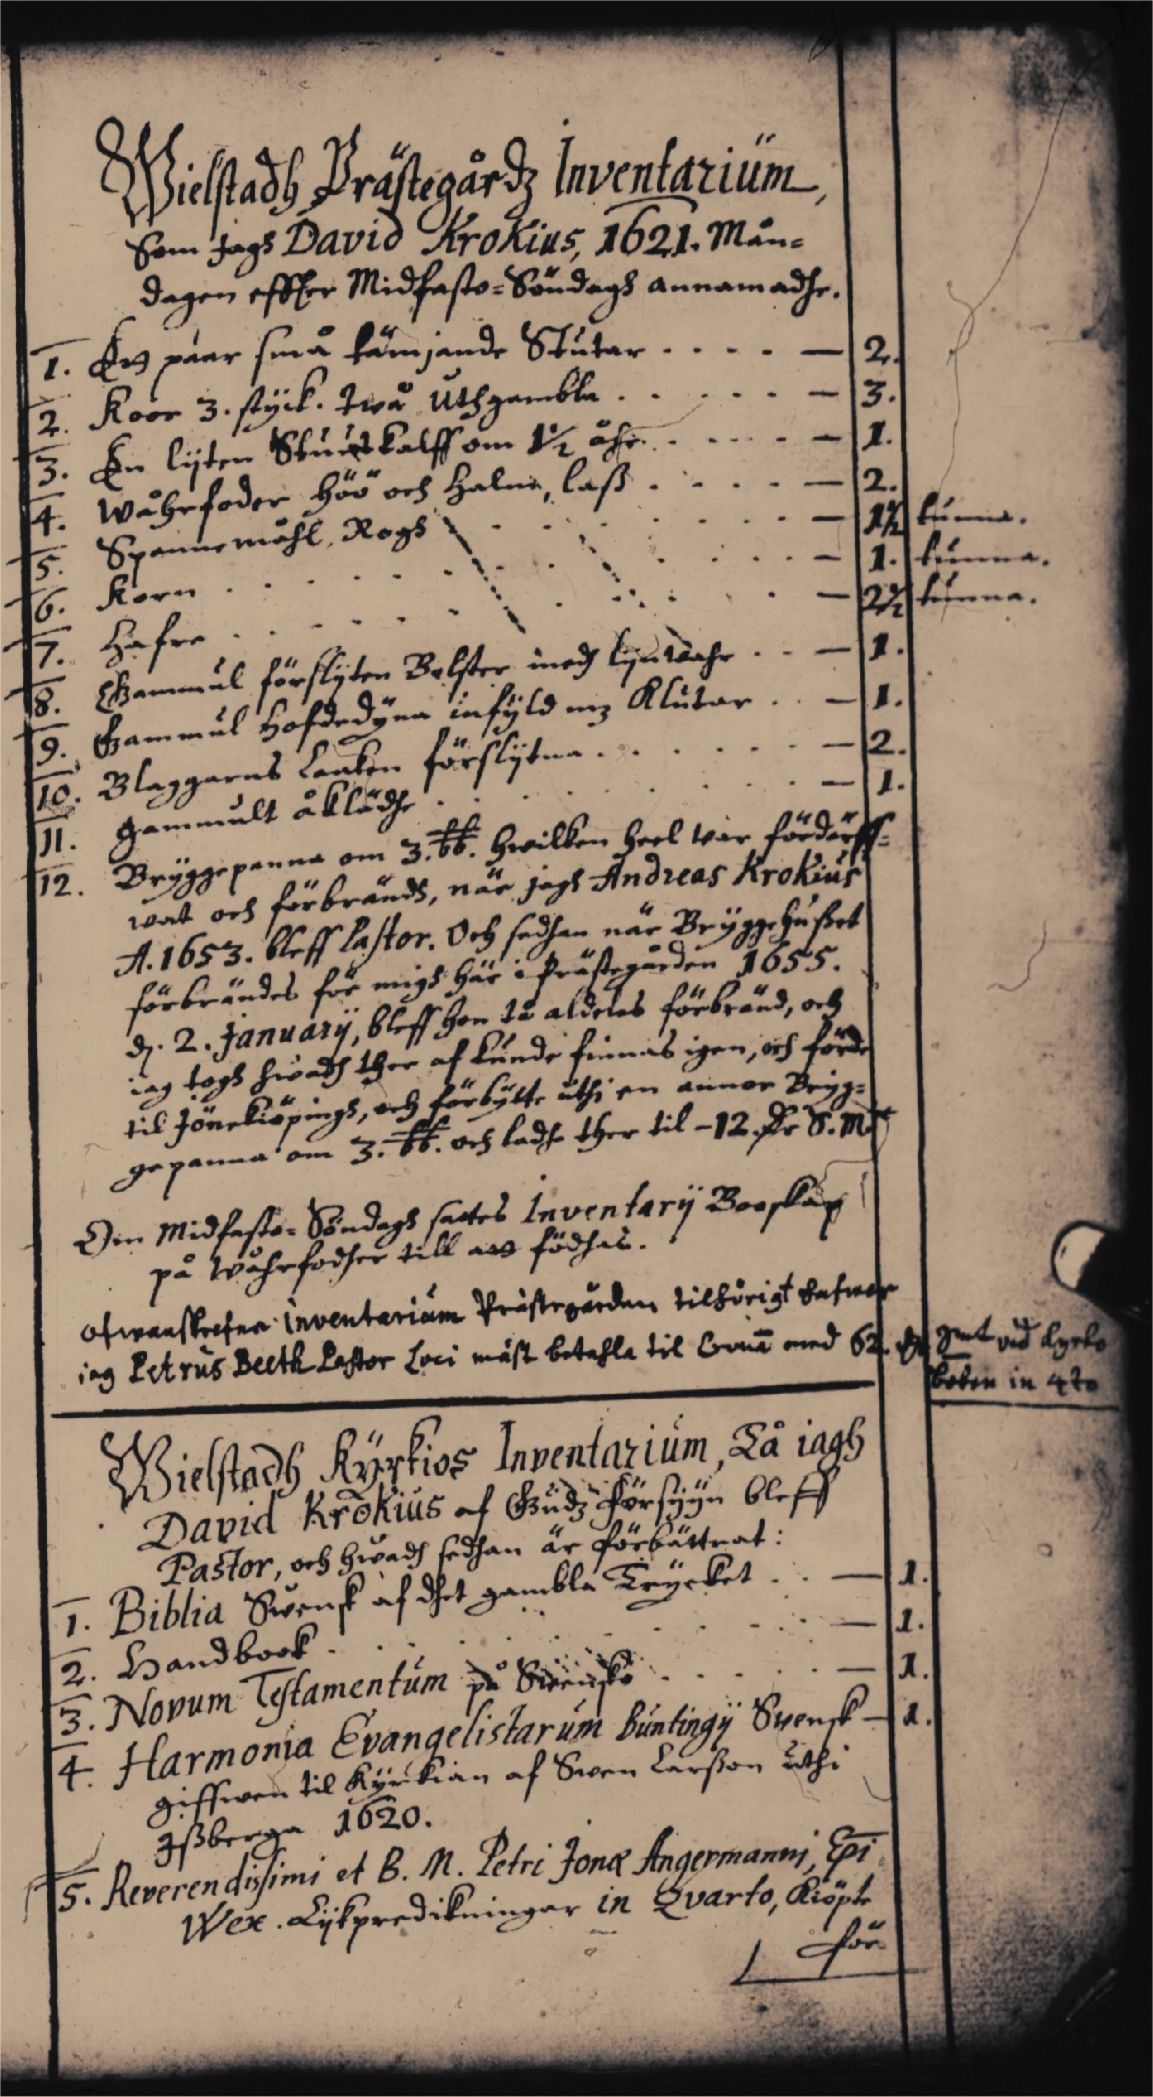 Wielstadh Prästegårdz Inventarium,
Som jagh David Krokius, 1621. Mån=
dagen effter Midfasto=Söndagh annamadhe.
1. Ett páar små tämjande Stutar . . . . — 2.
2. Koor 3. styck. twå Uthgambla . . . . . — 3.
3. En lijten Stuutkalff om 1½ åhr . . . . — 1.
4. Wåhrfoder höö och Halm, laß . . . . — 2.
5. Spannemåhl, Rogh . . . . . . — 1½ tunna.
6. Korn . . . . . . . . — 1. tunna.
7. Hafre . . . . . . . . — 2½ tunna.
8. Gammul förslijten Bolster medh lijnwahr . . — 1.
9. Gammul Hofdedyna infyld mz Klutar . . — 1.
10. Blaggarns Laaken förslijtna . . . . . . — 2.
11. gammult åklädhe . . . . . . . — 1.
12. Bryggepanna om 3. tt. hwilken heel war fördärff=
wat och förbrändh, när jagh Andreas Krokius
A. 1653. bleff Pastor. Och sedhan när Bryggehußet
förbrändes för migh här i Prästegården 1655.
d. 2. January, bleff hon tå aldeles förbränd, och
iag togh hwadh ther af kunde finnas igen, och förde
til Jönekiöpingh, och förbytte uthi en annor Bryg=
gepanna om 3. tt. och ladhe ther til – 12. Dr S. Mt
Om Midfasto=Söndagh sattes Inventarij Booskap
på Wåhrfodher till att födhas.
Ofwanskrefne inventarium Prästegården tilhörigt hafwer
iag Petrus Beeth Pastor Loci måst betahla til med 62. dr Smt vid kyrko
boken in 4to
Wielstadh Kyrkios Inventarium, Tå iagh
David Krokius af Gudz Försyyn bleff
Pastor, och hwadh sedhan är förbättrat:
1. Biblia Swensk af dhet gambla Trycket . . — 1.
2. Handbook . . . . . . . . — 1.
3. Novum Testamentum på Swensko . . . . . — 1.
4. Harmonia Evangelistarum Buntingij Swensk — 1.
giffwen til Kyrkian af Swen Larßon uthi
Ißberga 1620.
5. Reverendissimi et B. M. Petri Jonæ Angermanni, Epi
Wex. Lijkpredikningar in Qvarto, Kiöpte
för